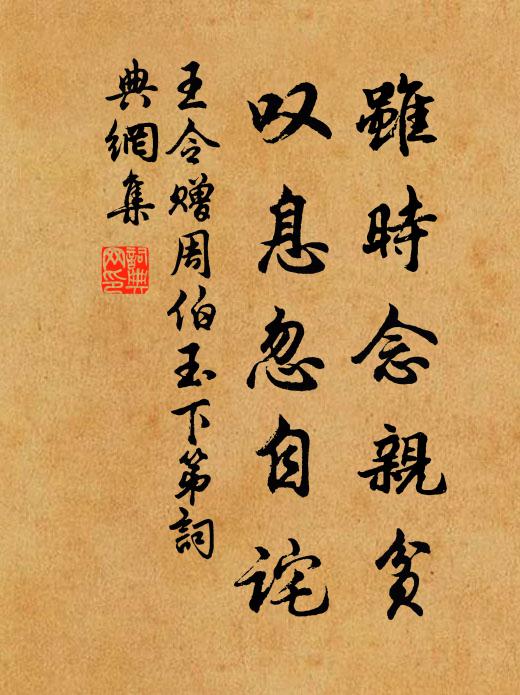 雖時念親貧
叹息忽自詫
王令赠周伯玉下第詞
典網集
詞典網印